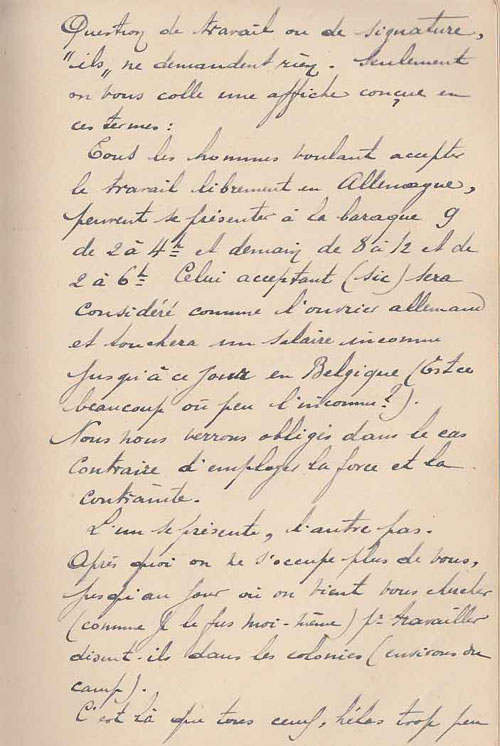 Question de travail ou de signature,
"ils" ne demandent rien. Seulement
on vous colle une affiche conçue en
ces termes:
Tous les hommes voulant accepter
le travail librement en Allemagne,
peuvent se présenter à la baraque 9
de 2 à 4h et demain de 8 à 12 et de
2 à 6h Celui acceptant (sic) sera
considéré comme l'ouvrier allemand
et touchera un salaire inconnu
jusqu'à ce jour en Belgique (Est ce
beaucoup ou peu l'inconnu?).
Nous nous verrons obligés dans le cas
contraire d'employer la force et la
contrainte.
L'un se présente, l'autre pas.
Après quoi on ne s'occupe plus de vous,
jusqu'au jour où on vient vous chercher
(comme je le fus moi-même) pr travailler
disent-ils dans les colonies (environs du
camp).
C'est là que tous ceux, hélas trop peu